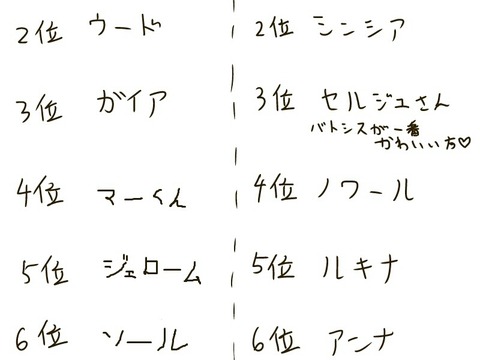 2位 ウード
3位 ガイア
4位 マーくん
5位 ジェローム
6位 ソール
2位 シンシア
3位 セルジュさん
バトシスが一番
かわいい方♡
4位 ノワール
5位 ルキナ
6位 アンナ